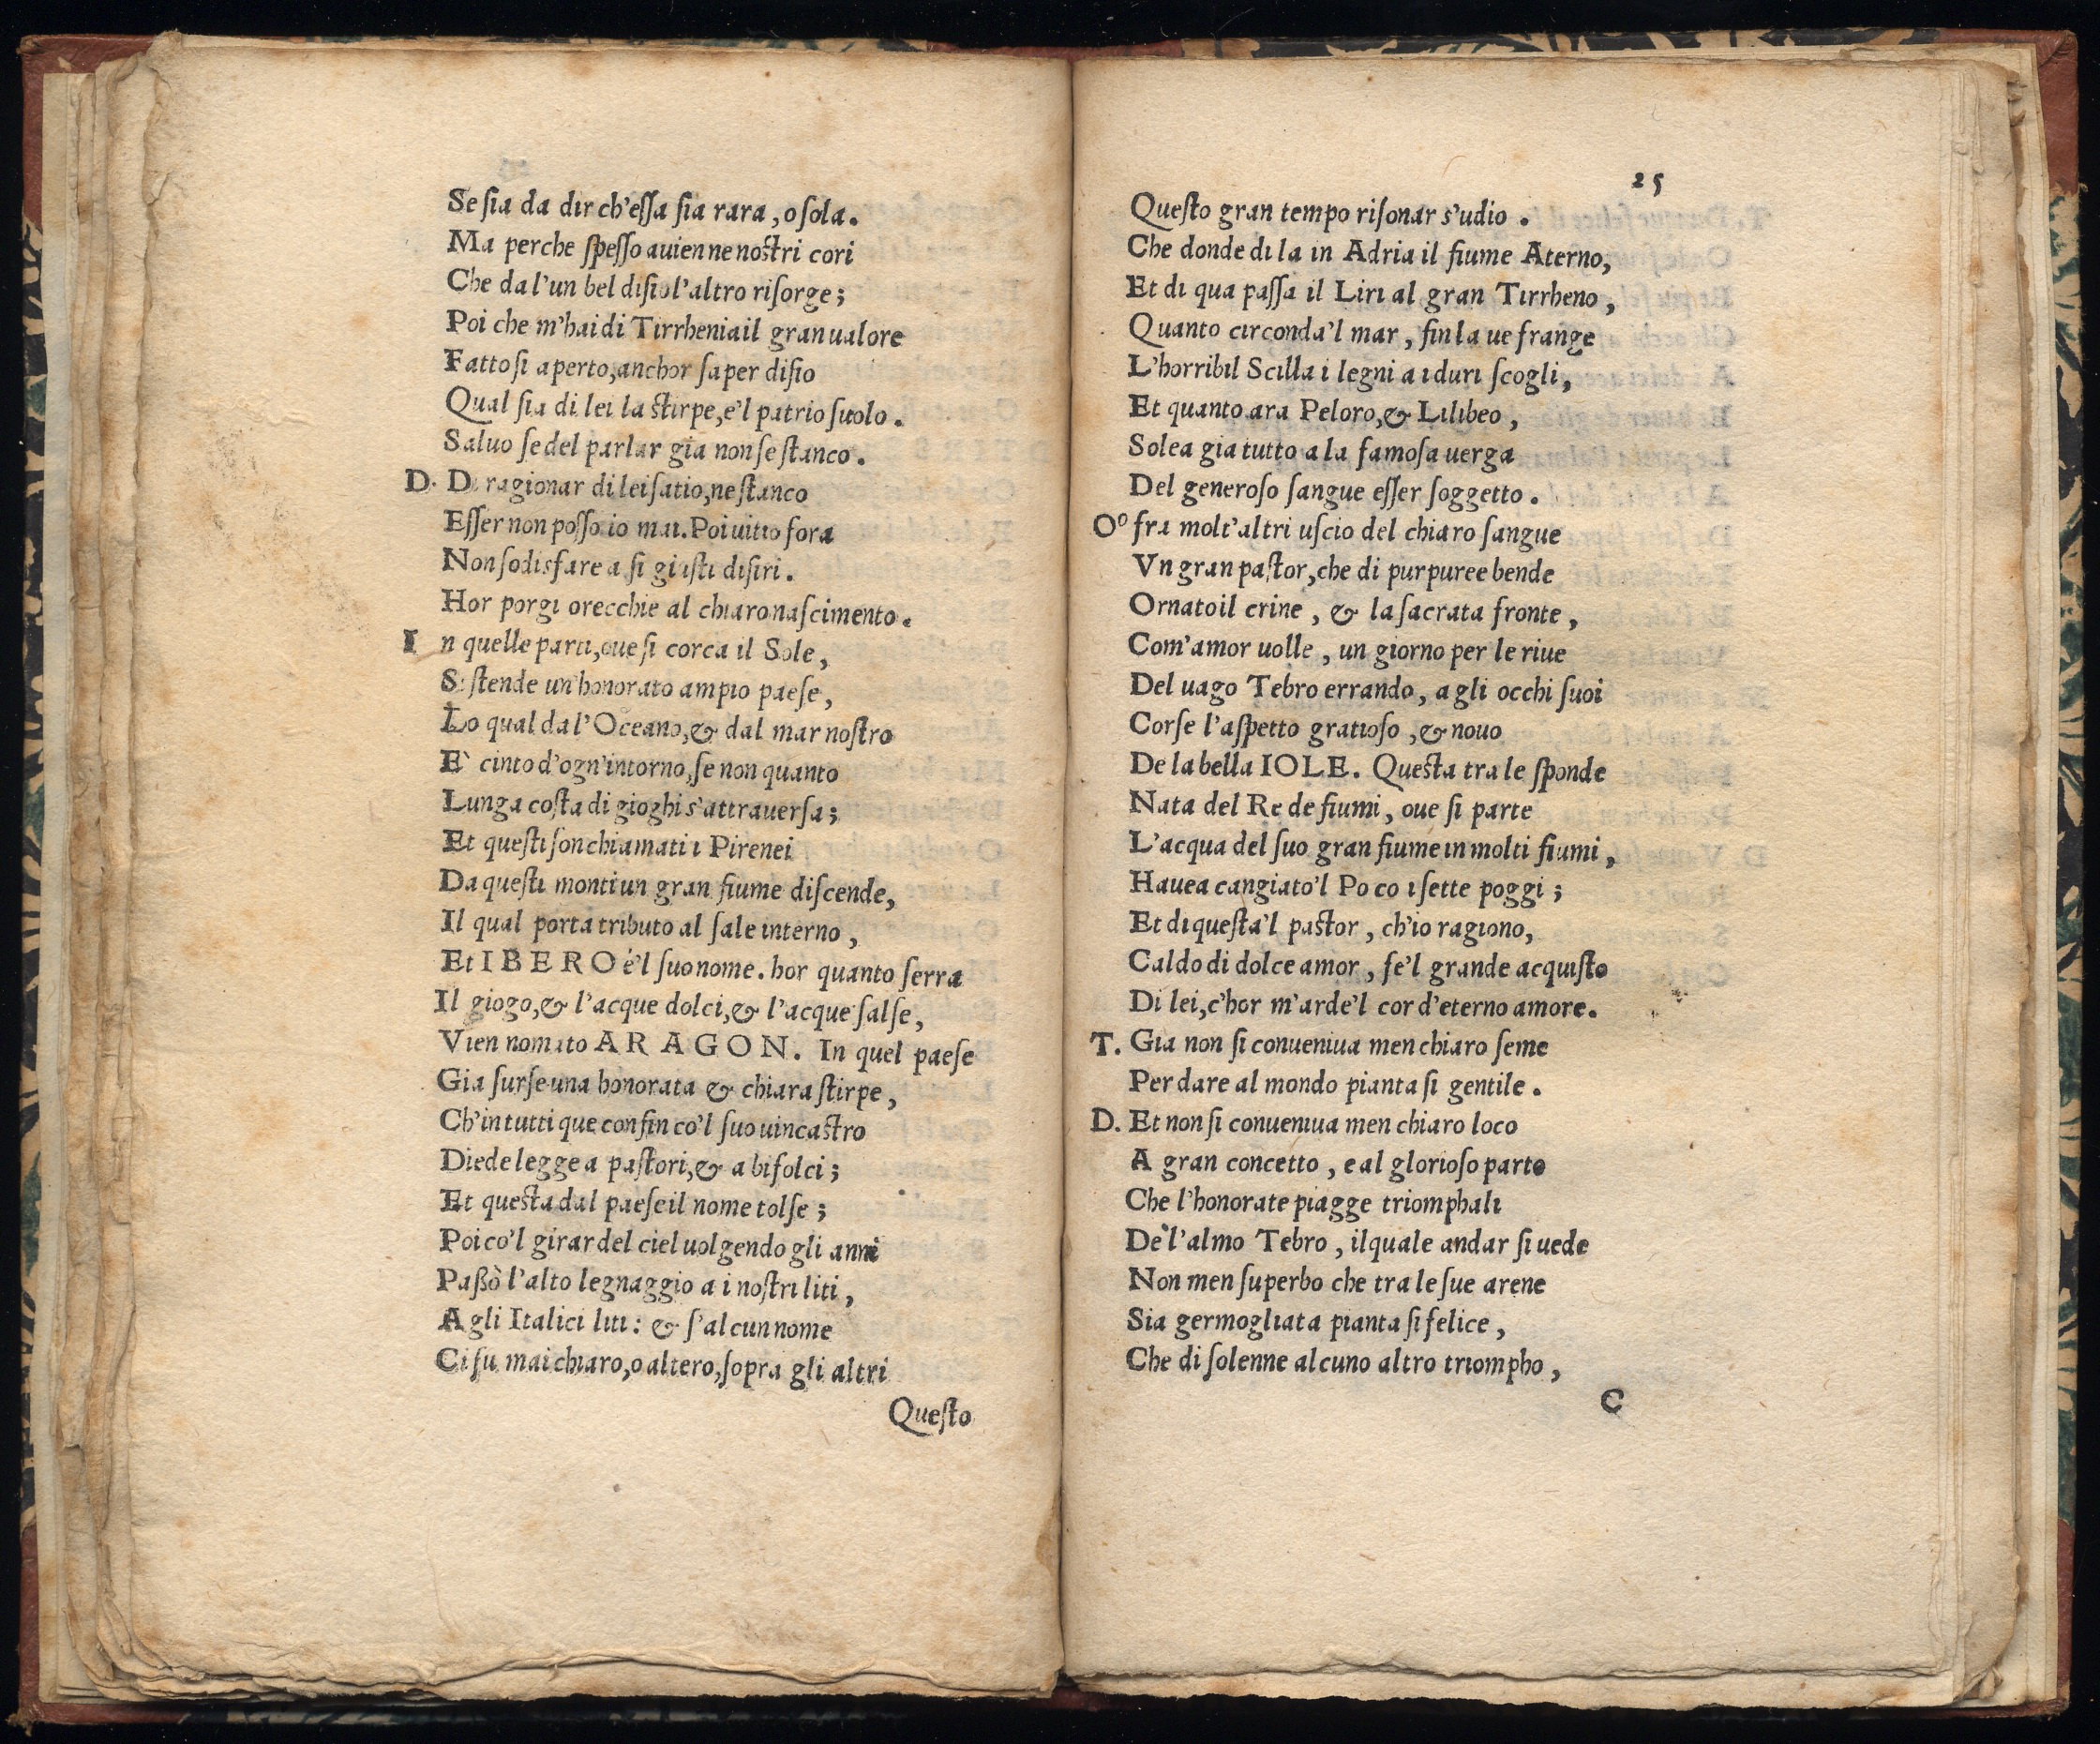 Se ſia da dir ch'eſſa ſia rara, o ſola.
Ma perche ſpeſſo auien ne noſtri cori
Che da l'un bel diſio l'altro riſorge;
Poi che m'hai di Tirrhenia il gran ualore
Fatto ſi aperto, anchor ſaper diſio
Qual ſia di lei la ſtirpe, e'l patrio ſuolo.
Saluo ſe del parlar gia non ſe ſtanco.
D. Di ragionar di lei ſatio, ne ſtanco
Eſſer non poſſo io mai. Poi uitio fora
Non ſodisfare a ſi giuſti diſiri.
Hor porgi orecchie al chiaro naſcimento.
In quelle parti, oue ſi corca il Sole,
Si ſtende un'honorato ampio paeſe,
Lo qual da l'Oceano, & dal mar noſtro
E` cinto d'ogn'intorno, ſe non quanto
Lunga coſta di gioghi s'attrauerſa;
Et queſti ſon chiamati i Pirenei
Da queſti monti un gran fiume diſcende,
Il qual porta tributo al ſale interno,
Et IBERO è'l ſuo nome. hor quanto ſerra
Il giogo, & l'acque dolci, & l'acque ſalſe,
Vien nomato ARAGON. In quel paeſe
Gia ſurſe una honorata & chiara ſtirpe,
Ch'in tutti que confin co'l ſuo uincaſtro
Diede legge a paſtori, & a bifolci;
Et queſta dal paeſe il nome tolſe;
Poi co'l girar del ciel uolgendo gli anni
Paßò l'alto legnaggio a i noſtri liti,
A gli Italici liti: & ſ'alcun nome
Ci fu mai chiaro, o altero, ſopra gli altri
Queſto
25
Queſto gran tempo riſonar s'udio.
Che donde di la in Adria il fiume Aterno,
Et di qua paſſa il Liri al gran Tirrheno,
Quanto circonda'l mar, fin la ue frange
L'horribil Scilla i legni a i duri ſcogli,
Et quanto ara Peloro, & Lilibeo,
Solea gia tutto a la famoſa uerga
Del generoſo ſangue eſſer ſoggetto.
Oº fra molt'altri uſcio del chiaro ſangue
Vn gran paſtor, che di purpuree bende
Ornato il crine, & la ſacrata fronte,
Com'amor uolle, un giorno per le riue
Del uago Tebro errando, a gli occhi ſuoi
Corſe l'aſpetto gratioſo, & nouo
De la bella IOLE. Queſta tra le ſponde
Nata del Re de fiumi, oue ſi parte
L'acqua del ſuo gran fiume in molti fiumi,
Hauea cangiato'l Po co i ſette poggi;
Et di queſta'l paſtor, ch'io ragiono,
Caldo di dolce amor, fe'l grande acquiſto
Di lei, c'hor m'arde'l cor d'eterno amore.
T. Gia non ſi conueniua men chiaro ſeme
Per dare al mondo pianta ſi gentile.
D. Et non ſi conueniua men chiaro loco
A gran concetto, e al glorioſo parto
Che l'honorate piagge triomphali
De l'almo Tebro, il quale andar ſi uede
Non men ſuperbo che tra le ſue arene
Sia germogliata pianta ſi felice,
Che di ſolenne alcuno altro triompho,
C